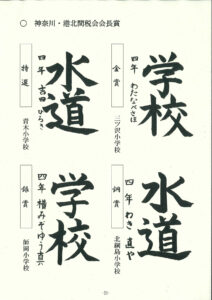 ○ 神奈川・港北間税会会長賞
金賞
学校
四年 わたなべさほ
三ツ沢小学校
特選
水道
四年 吉田ひろき
青木小学校
銅賞
水道
四年 わき直や
北綱島小学校
銀賞
学校
四年 橋みぞゆう真
師岡小学校